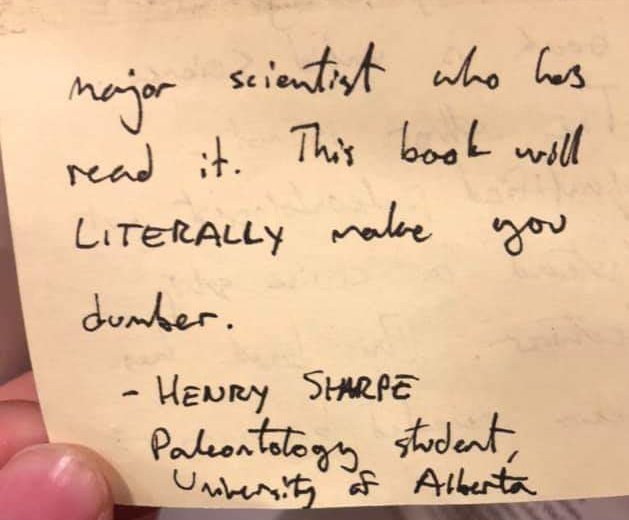 major scientist who has
read it. This book will
LITERALLY make you
dumber.
- HENRY SHARPE
Paleontology student,
University of Alberta